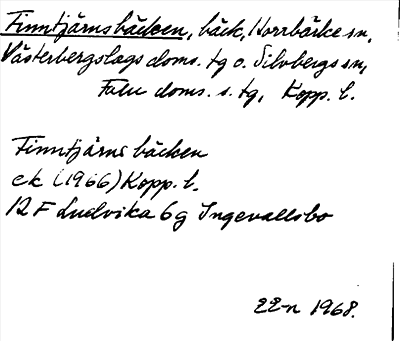 Finntjärnsbäcken, bäck, Norrbärke sn,
Västerbergslags doms. tg o. Silvbergs sn,
Falu doms. s. tg, Kopp. l.
Finntjärnsbäcken
ek (1966) Kopp. l.
12 F Ludvika 6 g Ingevallsbo
22-n 1968.